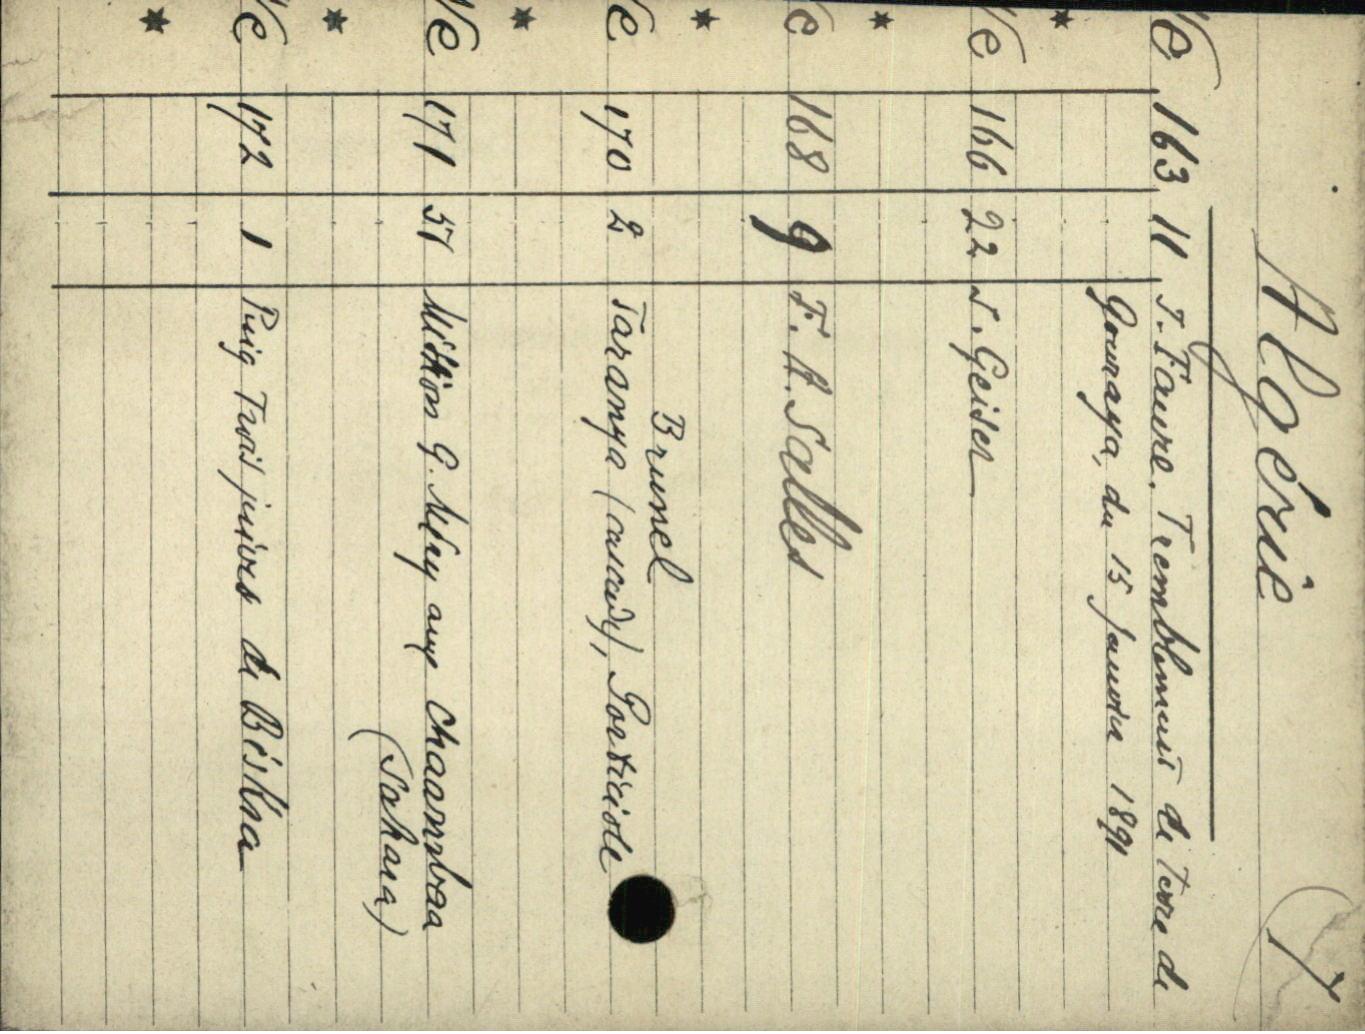 Algérie
7
We 163 11 J. Faure. Tremblement de terre de
Gouraya, du 15 Janvier 1891
*
We 166 22 J. Geiser
*
We 168 9 F. A. Salles
*
Brunel
We 170 2 Taranya (cascade), Porticiole
*
We 171 51 Mission G. Méry aux Chaambaa
(Sahara)
*
We 172 1 Puig Trois juives de Biskra
*